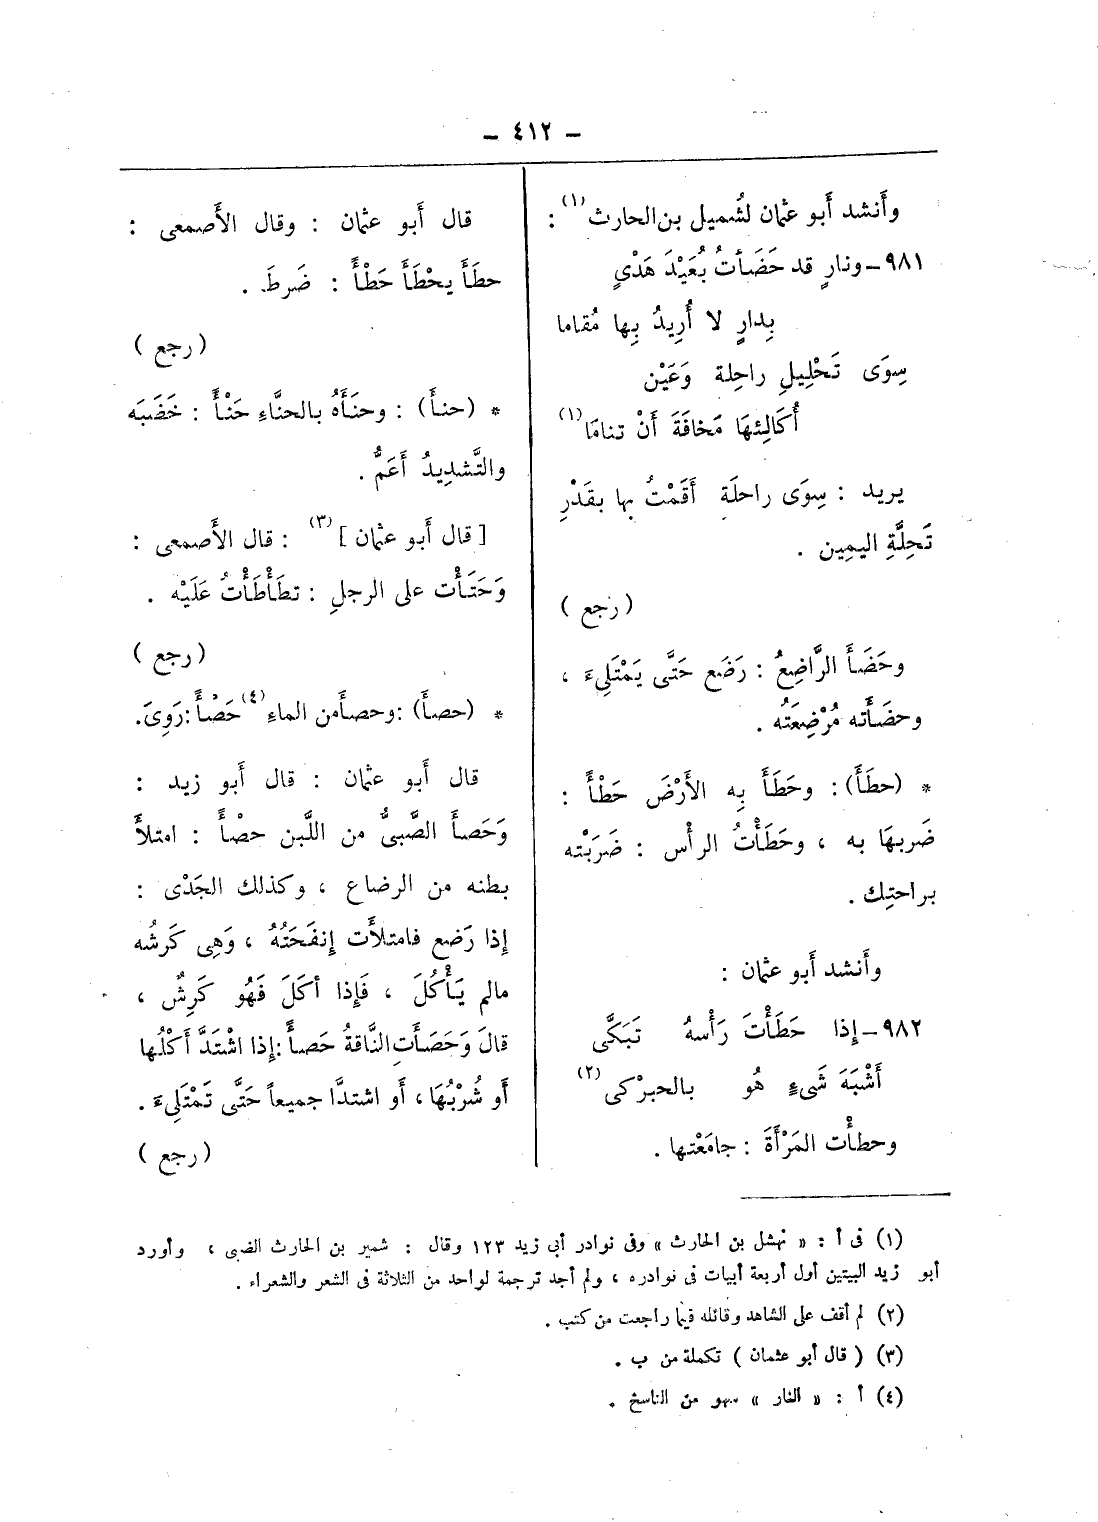 – ٤١٢ –
وأَنشد أَبو عثمان لشُميل بن الحارث(١) :
٩٨١ – ونارٍ قد حَضَأتُ بُعَيْدَ هَدْيٍ
بِدارٍ لا أُرِيدُ بِها مُقاما
سِوَى تَحْلِيلِ راحِلة وَعَيْن
أُكَالِئهَا مَخافَةَ أَنْ تنامَا(١)
يريد : سِوَى راحلَةٍ أَقَمْتُ بها بقَدْرِ
تَحِلَّةِ اليمِين .
(رجع)
وحَضَأَ الرَّاضِعُ : رَضَع حَتَّى يَمْتَلِىءَ ،
وحضَأَته مُرْضِعَتُه .
* (حطَأَ) : وحَطَأَ بِه الأَرْضَ حَطْأً :
ضَربهَا به ، وحَطَأْتُ الرأْس : ضَرَبْته
براحتِك .
وأَنشد أَبو عثمان :
٩٨٢ – إِذا حَطَأْتَ رَأْسهُ تَبَكَّى
أَشْبَهَ شَىءٍ هُو بالحبرْكى(٢)
وحطأْت المَرْأَةَ : جامَعْتها .
قال أَبو عثمان : وقال الأَصمعى :
حطَأَ يحْطَأَ حَطْأً : ضَرطَ .
(رجع)
* (حنأَ) : وحنَأَهُ بالحنَّاءِ حَنْأً : خَضَبَه
والتَّشدِيدُ أَعَمُّ .
[ قال أَبو عثمان ](٣) : قال الأَصمعى :
وَحَتَأْت على الرجلِ : تطَأْطَأْتُ عَلَيْه .
(رجع)
* (حصأَ) : وحصأَ من الماءِ(٤) حَصْأً : رَوِىَ .
قال أَبو عثمان : قال أَبو زيد :
وَحَصأَ الصَّبىُّ من اللَّبن حصْأً : امتلأَ
بطنه من الرضاع ، وكذلك الجَدْى :
إِذا رَضع فامتلأَت إِنفَحَتُهُ ، وَهِى كَرشُه
مالم يَأْكُلَ ، فَإِذا أكَلَ فَهُو كَرِشٌ ،
قالَ وَحَصَأَتِ النَّاقةُ حَصأً : إِذا اشْتَدَّ أَكْلُها
أَو شُرْبُهَا ، أَو اشتدَّا جميعاً حَتَّى تَمْتَلِىءَ .
(رجع)
(١) فى أ : « نهشل بن الحارث » وفى نوادر أبى زيد ١٢٣ وقال : شمير بن الحارث الضبى ، وأورد
أبو زيد البيتين أول أربعة أبيات فى نوادره ، ولم أجد ترجمة لواحد من الثلاثة فى الشعر والشعراء .
(٢) لم أقف على الشاهد وقائله فيما راجعت من كتب .
(٣) ( قال أبو عثمان ) تكملة من ب .
(٤) أ : « النار » سهو من الناسخ .